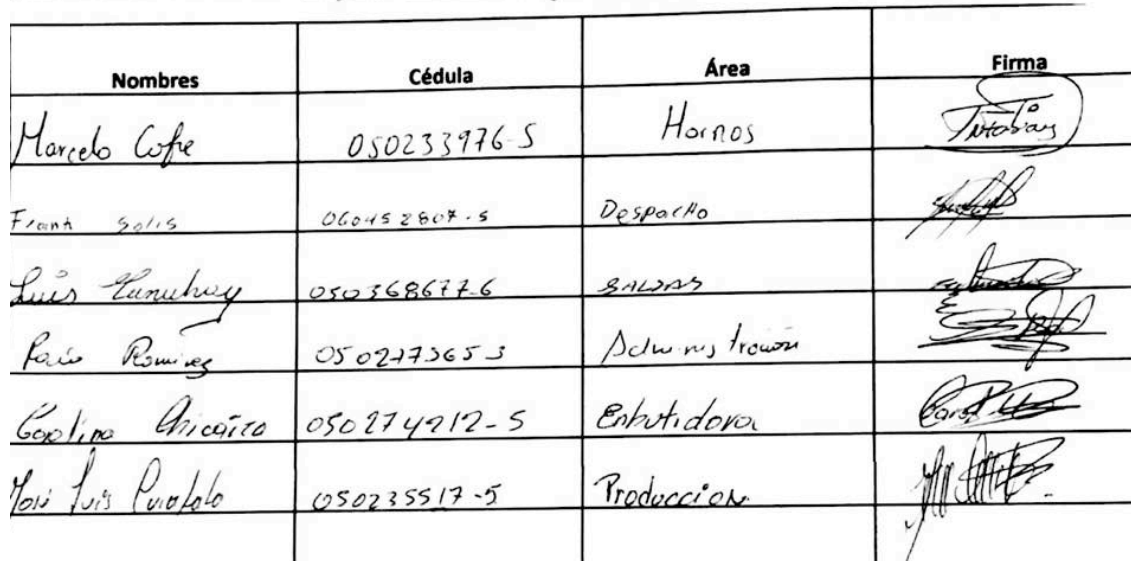 Nombres Cédula Área Firma
Marcelo Cofre 050233976-5 Hornos
Frank Solis 060452807-5 Despacho
Luis 050368677-6
Ramirez 0502773653 Administración
Carolina Chicaiza 050274912-5 Enbutidora
José Luis 050235517-5 Produccion